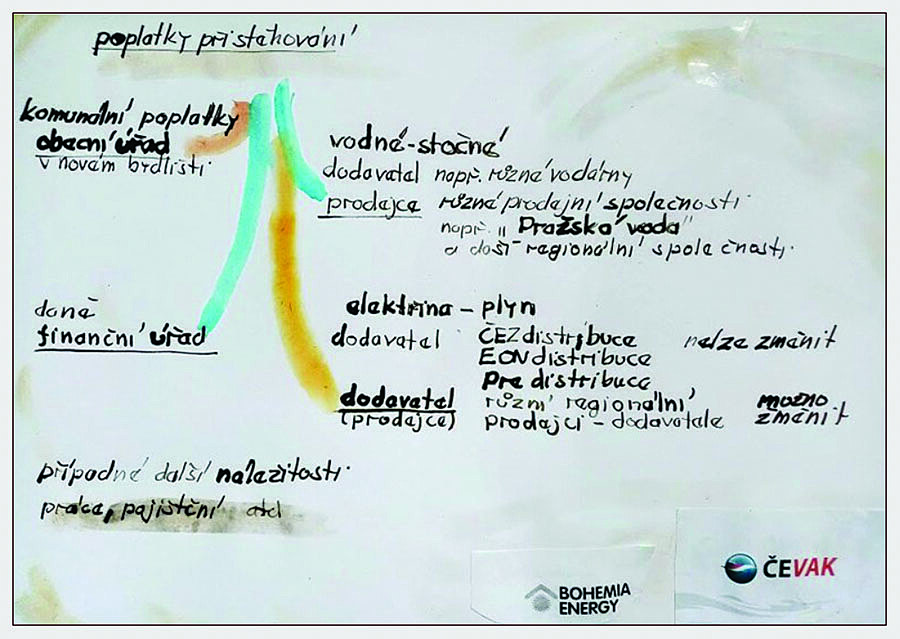 poplatky přistěhování
komunální poplatky
obecní úřad
v novém brdlišti
vodné-stočné
dodavatel např. různé vodárny
prodejce různé prodejní společnosti
např. „Pražská voda"
a dalši regionální společnosti.
daně
finanční úřad
elektřina – plyn
dodavatel ČEZ distribuce nelze změnit
EON distribuce
Pre distribuce
dodavatel různí regionální možno
(prodejce) prodejci – dodavatele změnit
případné další nalezitosti
práce, pojištění atd
BOHEMIA
ENERGY
ČEVAK